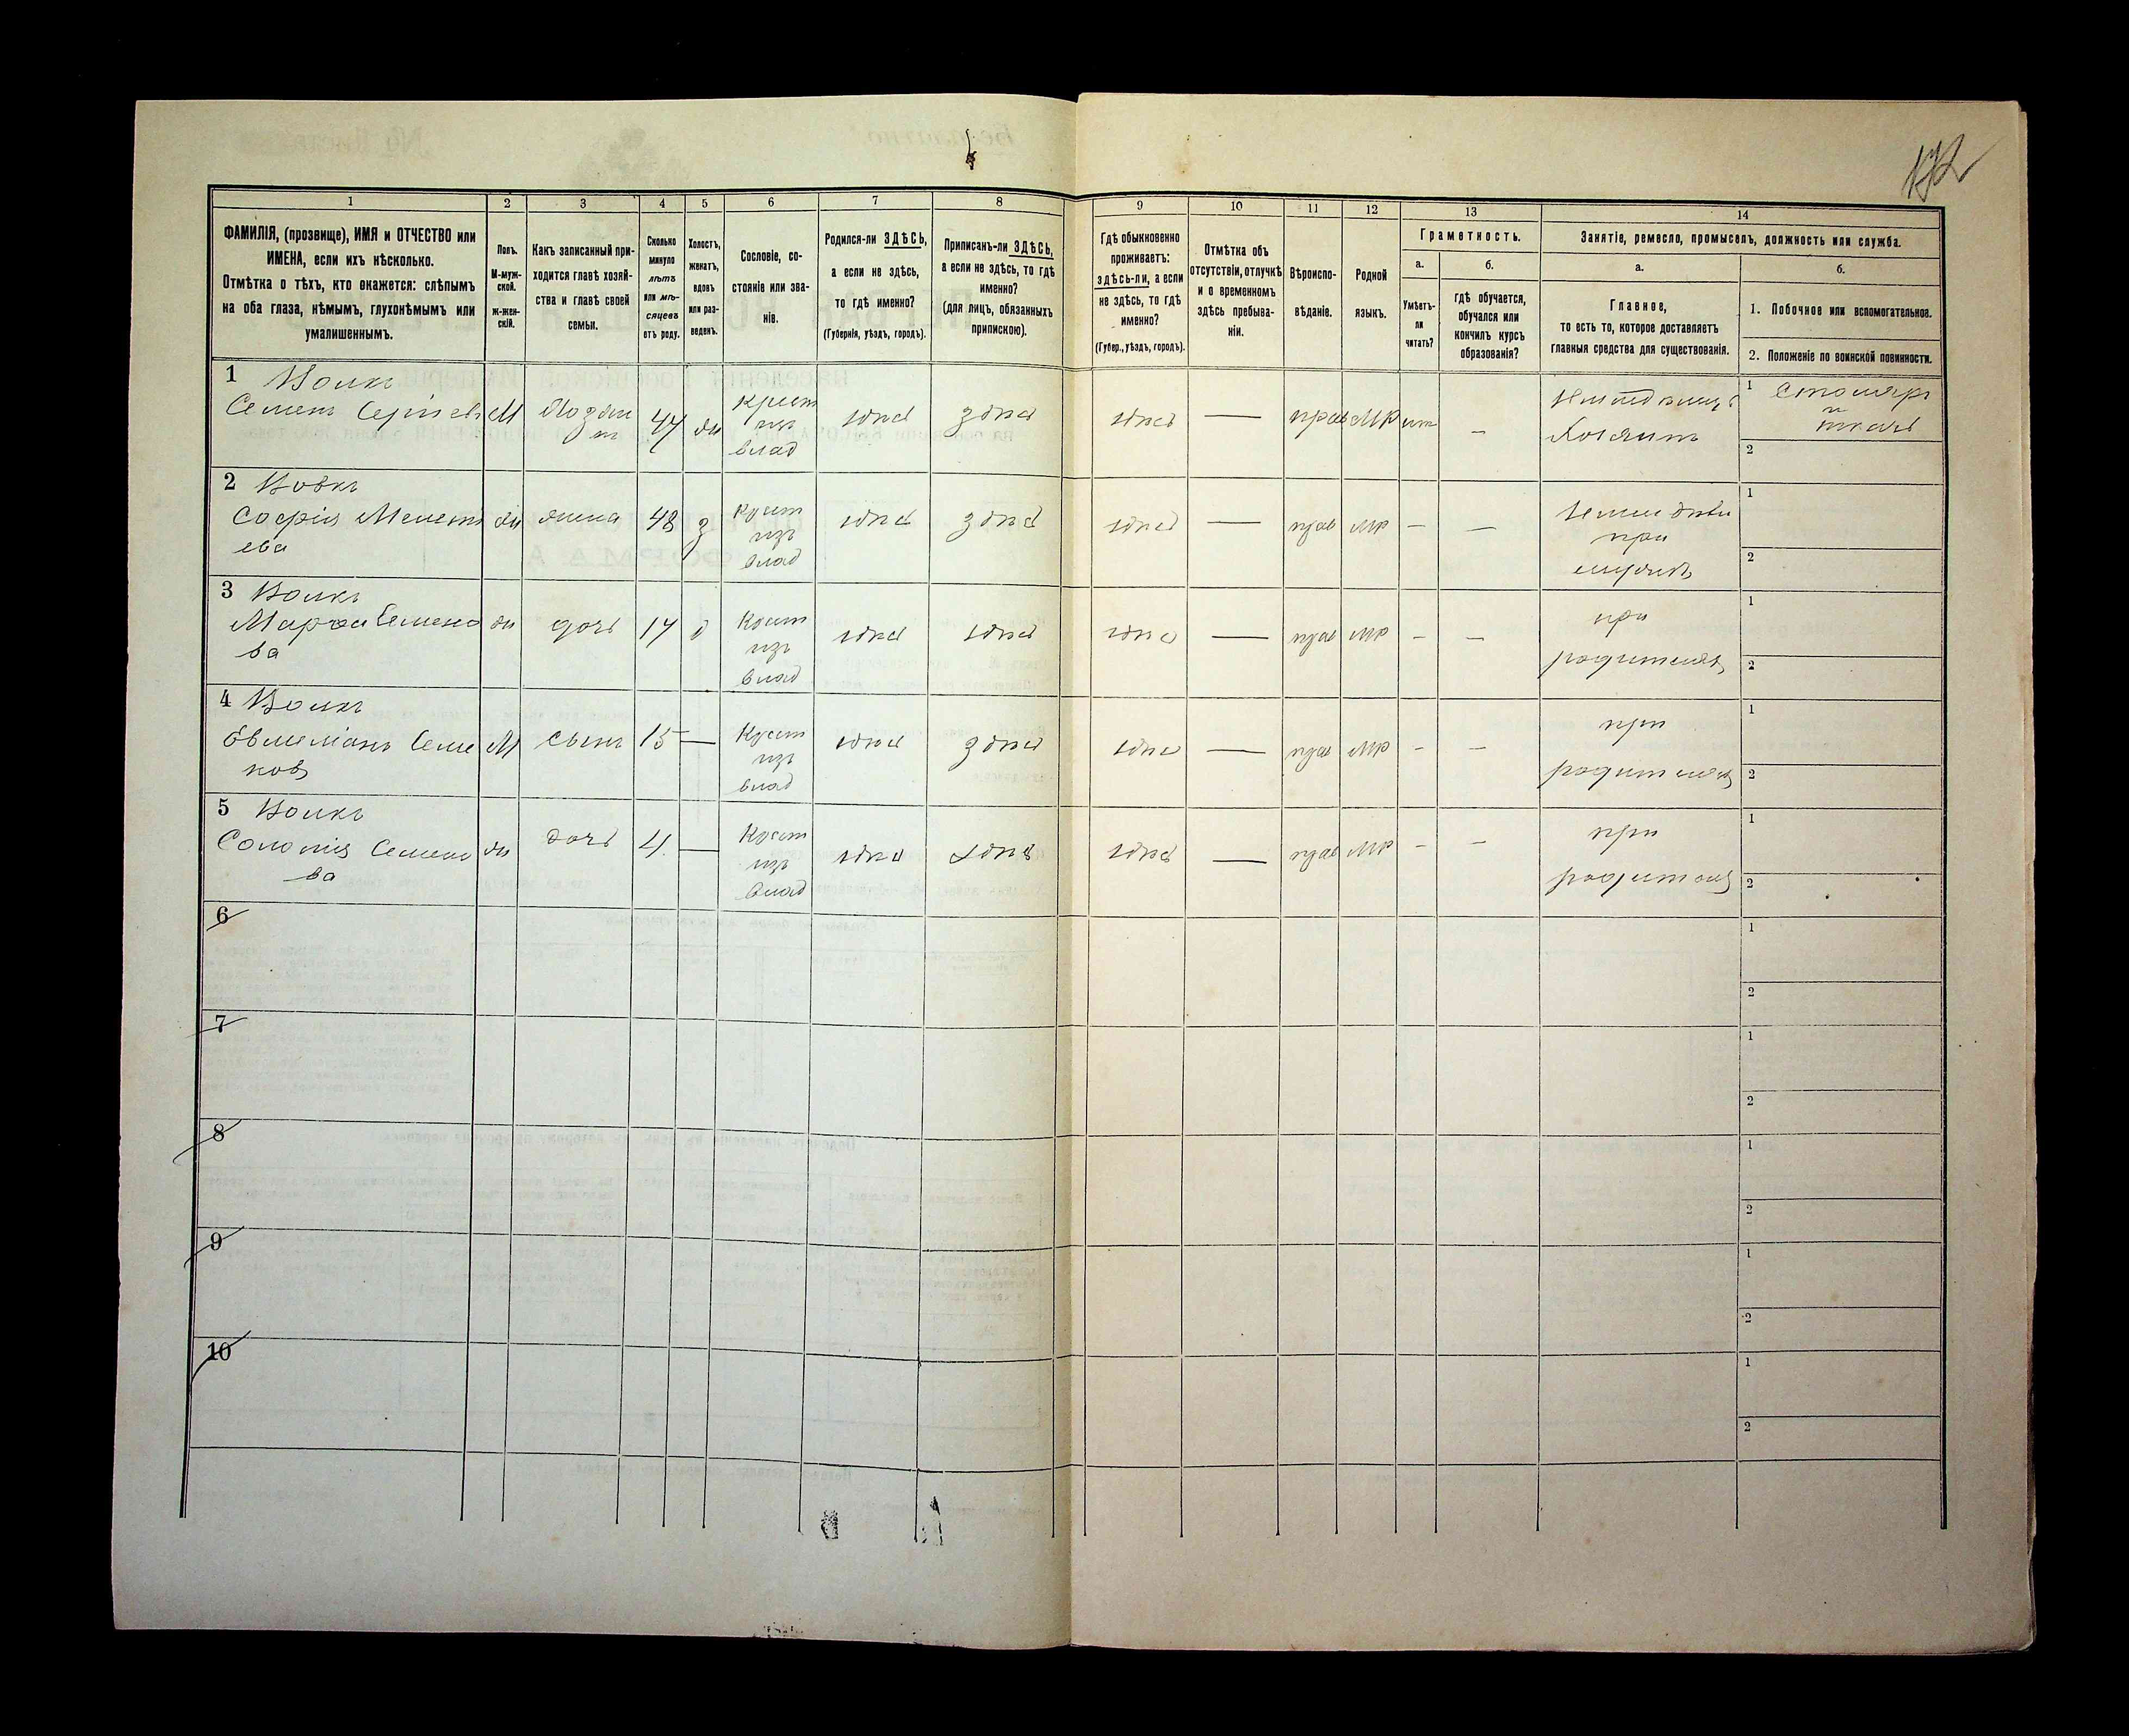 172
1 2 3 4 5 6 7 8 9 10 11 12 13 14
ФАМИЛІЯ, (прозвище), ИМЯ и ОТЧЕСТВО или
ИМЕНА, если ихъ нѣсколько.
Отмѣтка о тѣхъ, кто окажется: слѣпымъ
на оба глаза, нѣмымъ, глухонѣмымъ или
умалишеннымъ.
Полъ.
М-муж-
ской.
Ж-жен-
скій.
Какъ записанный при-
ходится главѣ хозяй-
ства и главѣ своей
семьи.
Сколько
минуло
лѣтъ
или мѣ-
сяцевъ
отъ роду.
Холостъ,
женатъ,
вдовъ
или раз-
веденъ.
Сословіе, со-
стояніе или зва-
ніе.
Родился-ли ЗДѢСЬ,
а если не здѣсь,
то гдѣ именно?
(Губернія, уѣздъ, городъ).
Приписанъ-ли ЗДѢСЬ,
а если не здѣсь, то гдѣ
именно?
(для лицъ, обязанныхъ
припискою).
Гдѣ обыкновенно
проживаетъ:
здѣсь-ли, а если
не здѣсь, то гдѣ
именно?
(Губер., уѣздъ, городъ).
Отмѣтка объ
отсутствіи, отлучкѣ
и о временномъ
здѣсь пребыва-
ніи.
Вѣроиспо-
вѣданіе.
Родной
языкъ.
Грамотность.
а.
Умѣетъ-
ли
читать?
б.
гдѣ обучается,
обучался или
кончилъ курсъ
образованія?
Занятіе, ремесло, промыселъ, должность или служба.
а.
Главное,
то есть то, которое доставляетъ
главныя средства для существованія.
б.
1. Побочное или вспомогательное.
2. Положеніе по воинской повинности.
1 Волкъ
Семенъ Сергіевъ М 47 жн
Крест
изъ
влад
здѣсь здѣсь здѣсь — прав МР —
Хозяинъ
1 Столяръ
и
ткачь
2
2 Вовкъ
Софія Мелеті
ева
ж жена 48 з
Крест
изъ
влад
здѣсь здѣсь здѣсь — прав МР — —
при
мужѣ
1
2
3 Волкъ
Марфа Семено
ва
ж дочь 17 д
Крест
изъ
влад
здѣсь здѣсь здѣсь — прав МР — —
при
родителяхъ
1
2
4 Волкъ
Семе
новъ
М сынъ 15 —
Крест
изъ
влад
здѣсь здѣсь здѣсь — прав МР — —
при
родителяхъ
1
2
5 Волкъ
Соломія Семено
ва
ж дочь 4 —
Крест
изъ
влад
здѣсь здѣсь здѣсь — прав МР — —
при
родителяхъ
1
2
6
1
2
7
1
2
8
1
2
9
1
2
10
1
2